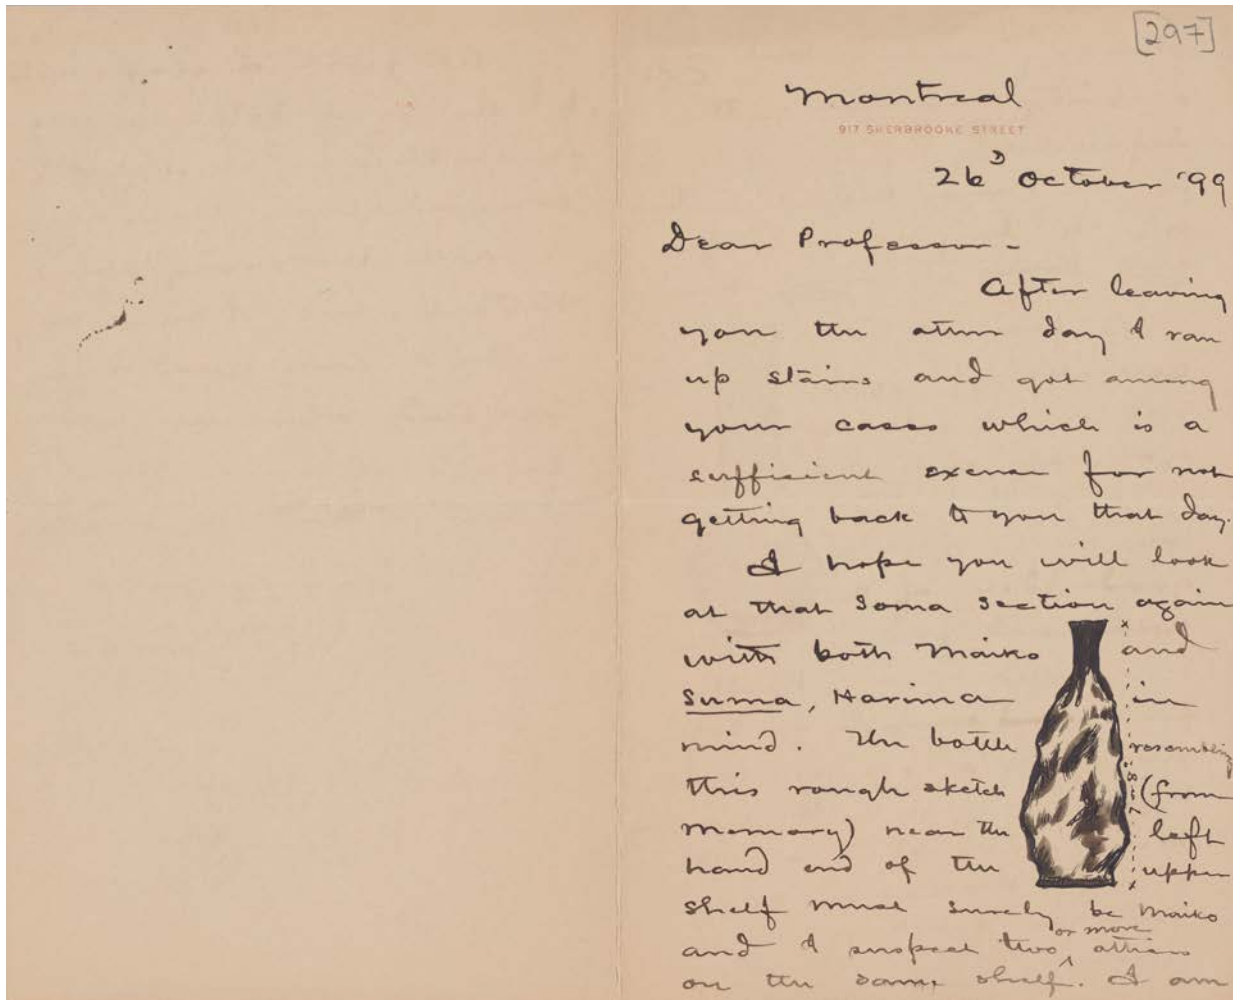 [297]
Montreal
917 SHERBROOKE STREET
26D October '99
Dear Professor -
After leaving
you the other day I ran
up stairs and got among
your cases which is a
sufficient excuse for not
getting back to you that day.
I hope you will look
at that Soma section again
with both Maiko and
Suma, Harima in
mind. The bottle resembling
this rough sketch (from
memory) near the left
hand end of the upper
shelf must surely be Maiko
or more
and I suspect two ^ others
on the same shelf. I am